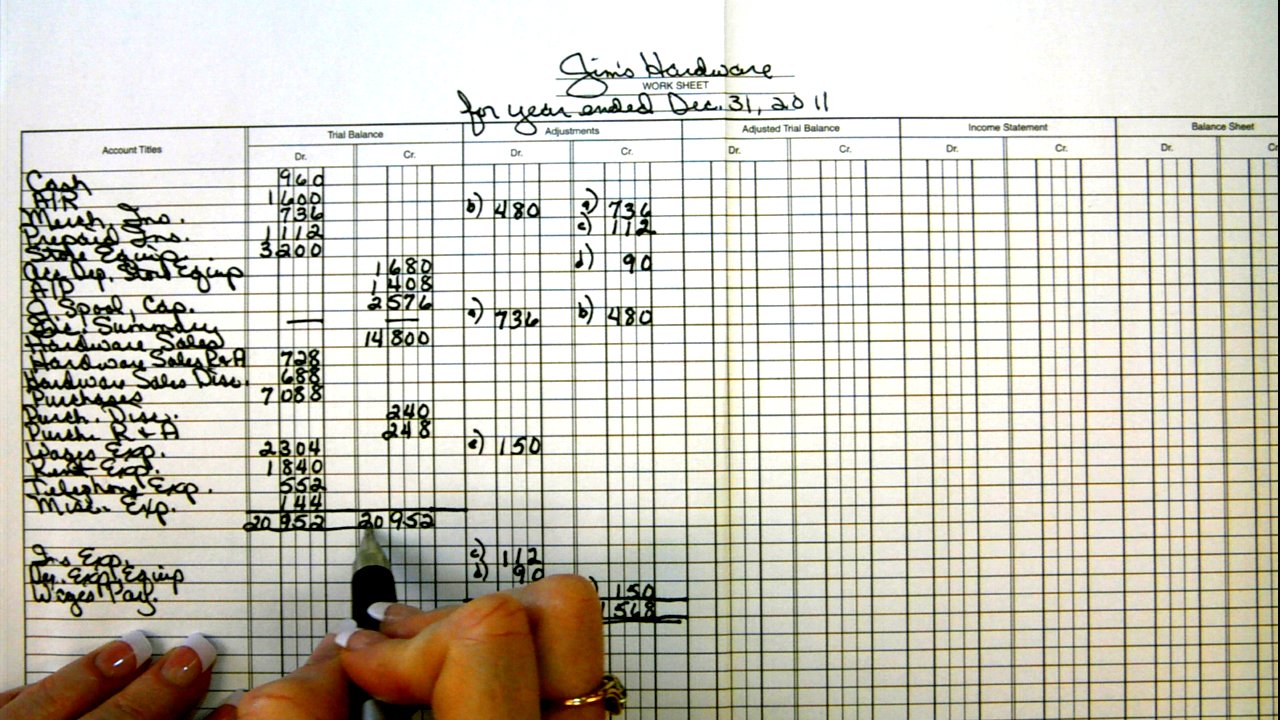 Jim's Hardware
WORK SHEET
for year ended Dec. 31, 2011
Trial Balance Adjustments Adjusted Trial Balance Income Statement Balance Sheet
Account Titles Dr. Cr. Dr. Cr. Dr. Cr. Dr. Cr. Dr. C
Cash 960
A/R 1600
Merch. Ins. 736 b) 480 a) 736
Prepaid Ins. 1112 c) 112
Store Equip. 3200
Acc. Dep. Store Equip 1680 d) 90
A/P 1408
J. Spool, Cap. 2576
Inc. Summary — — a) 736 b) 480
Hardware Sales 14800
Hardware Sales R&A 728
Hardware Sales Disc. 688
Purchases 7088
Purch. Disc. 240
Purch. R & A 248
Wages Exp. 2304 e) 150
Rent Exp. 1840
Telephone Exp. 552
Misc. Exp. 144
20952 20952
Ins Exp. c) 112
Dep. Exp. Equip d) 90
Wages Pay. ) 150
1568